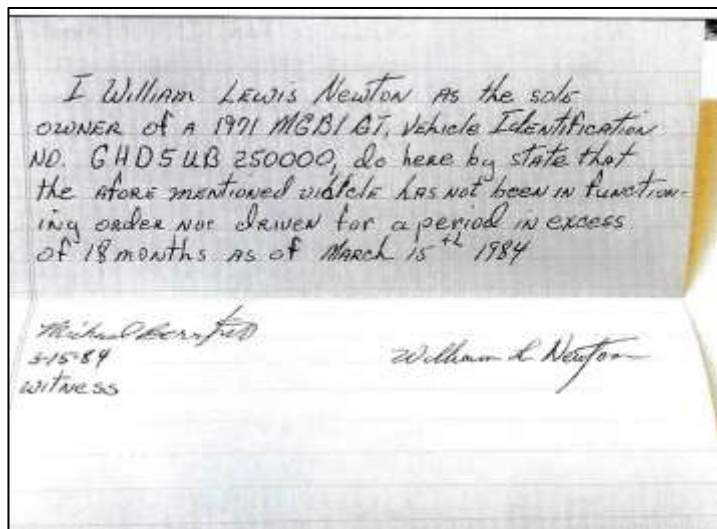 I William Lewis Newton as the sole
owner of a 1971 MGB/GT, Vehicle Identification
NO. GHD5UB 250000, do here by state that
the afore mentioned viehcle has not been in function-
ing order nor driven for a period in excess
of 18 months as of March 15th 1984
Michael
3-15-84
witness
William L Newton